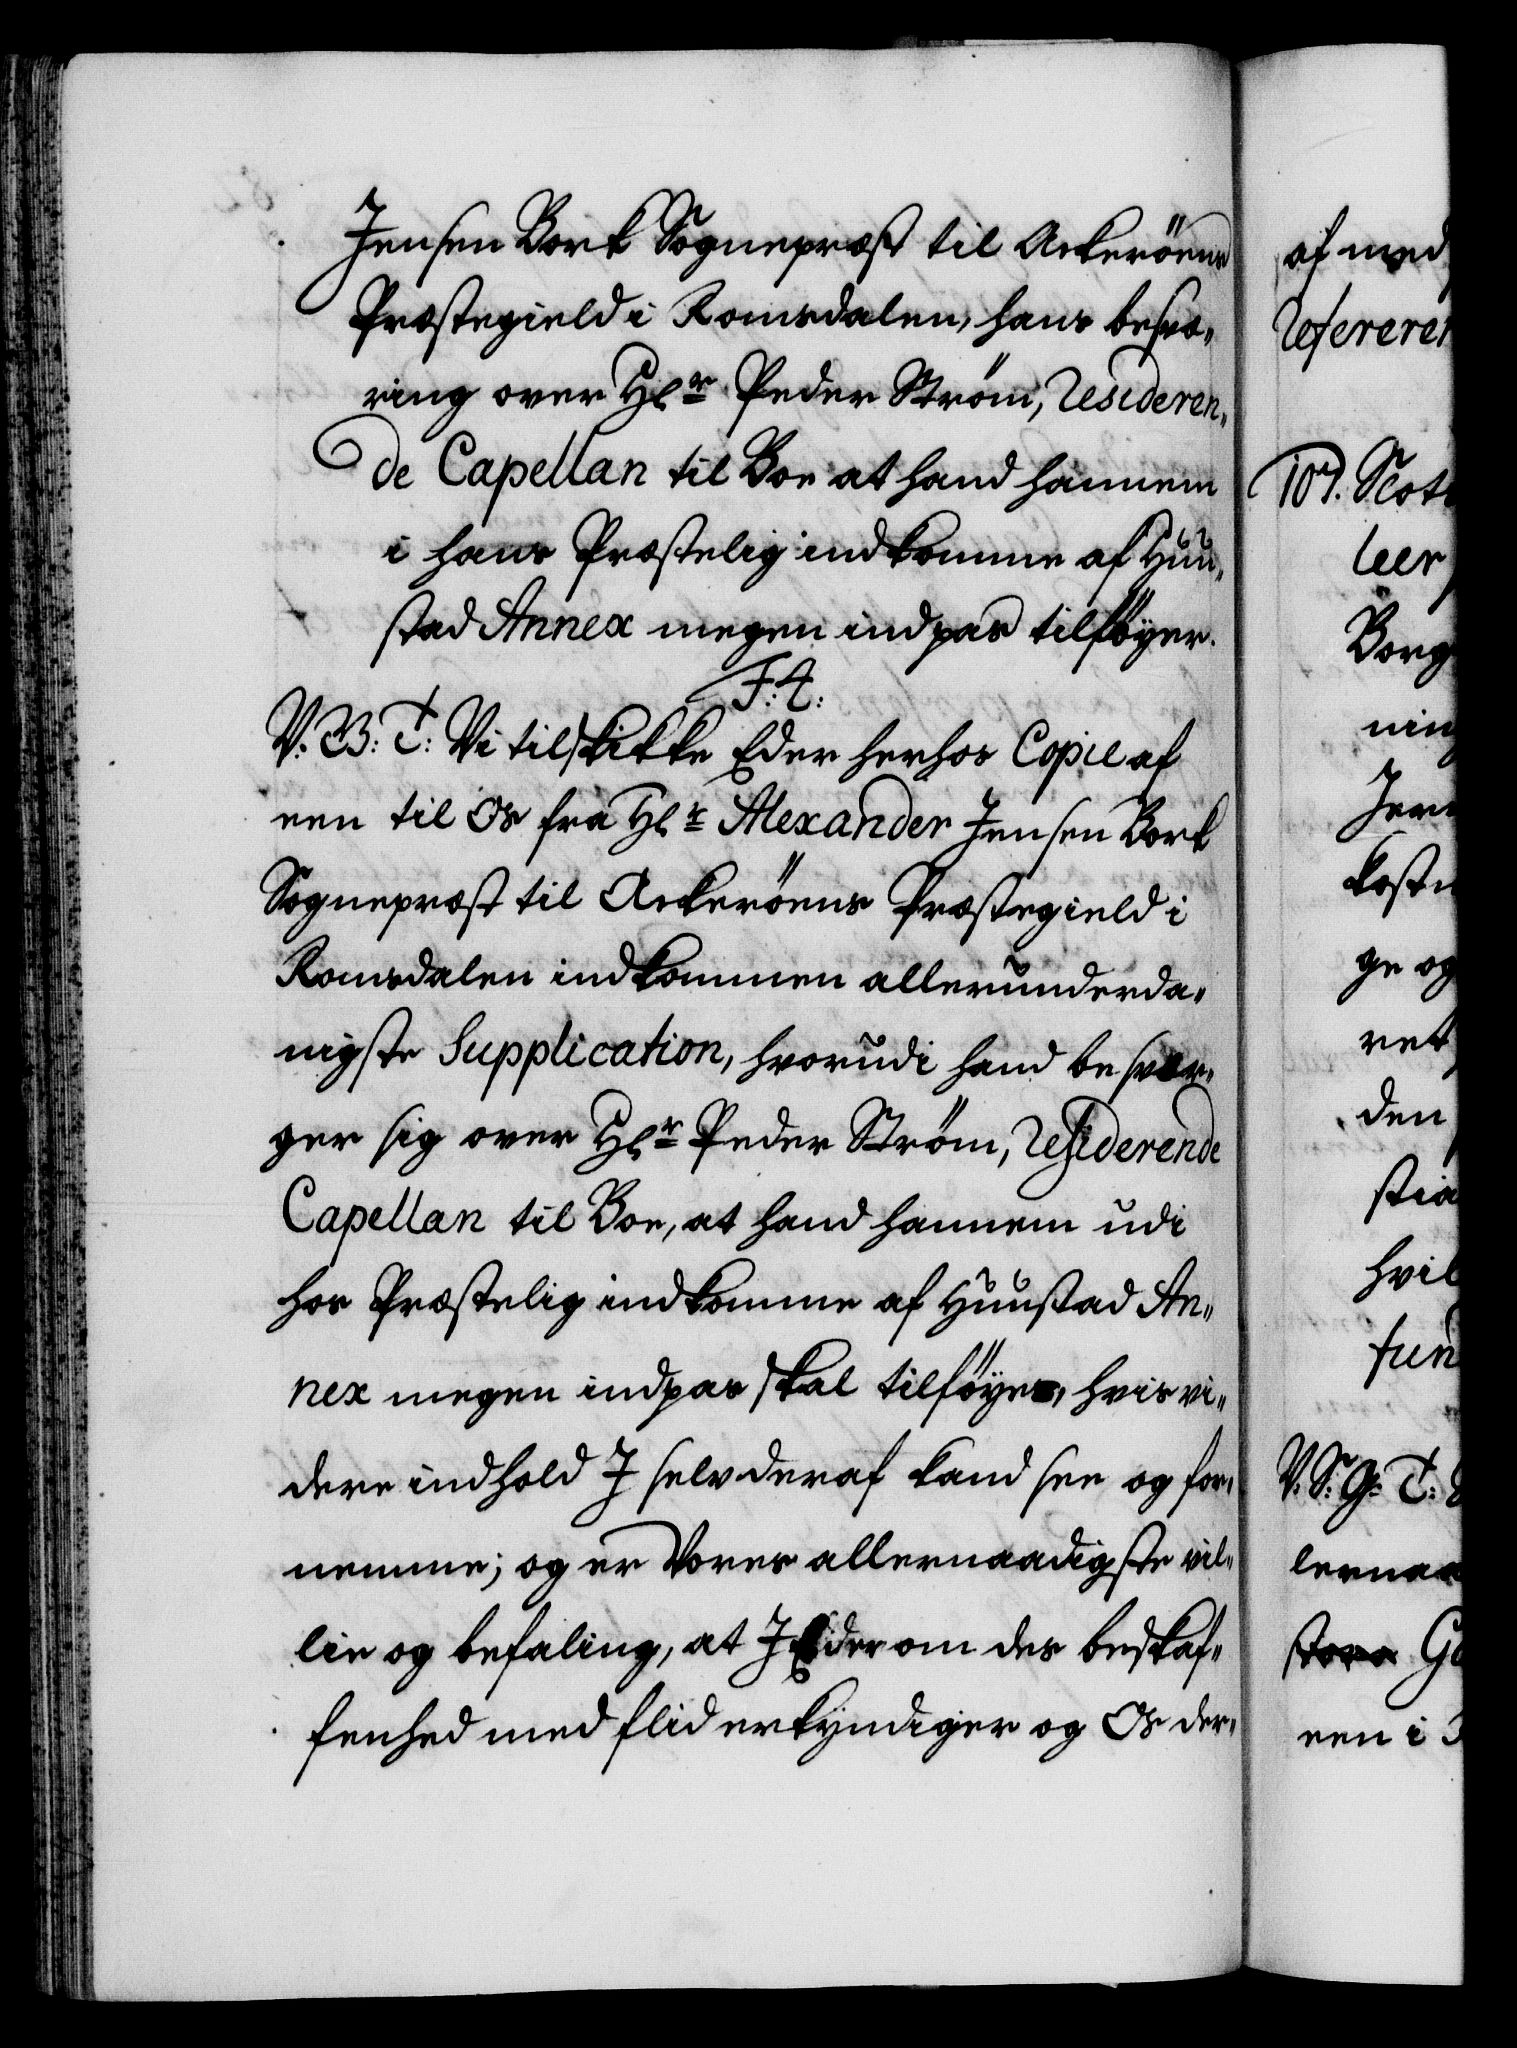 Jensen Bork Sognepræst til Ackeröens
Præstegield i Romsdalen, hans besvæ-
ring over Hl.r Peder Ström, Resideren-
de Capellan til Boe at hand hannem
i hans Præstelig indkomme af Huu-
stad Annex megen indpas tilföyer.
F: 4:
V. B: T: Vi tilskikke Eder herhos Copie af
een til Os fra Hl.r Alexander Jensen Bork
Sognepræst til Ackeröens Præstegield i
Romsdalen indkommen allerunderda-
nigste Supplication, hvorudi hand besvær-
ger sig over Hl.r Peder Ström, Residerende
Capellan til Boe, at hand hannem udi
hos Præstelig indkomme af Huustad An-
nex megen indpas skal tilföye, hvis vi-
dere indhold J selv deraf kand see og for-
nemme; og er Vores allernaadigste vil-
lie og befaling, at J Eder om des beskaf-
fenhed med flid erkyndiger og Os der-
af med
referere
107. Scot
leer
Borg
ning
Jer
kost
ge og
ret
den
stia
hvil
fun
V. S: G: T:
lernaa
store
een i